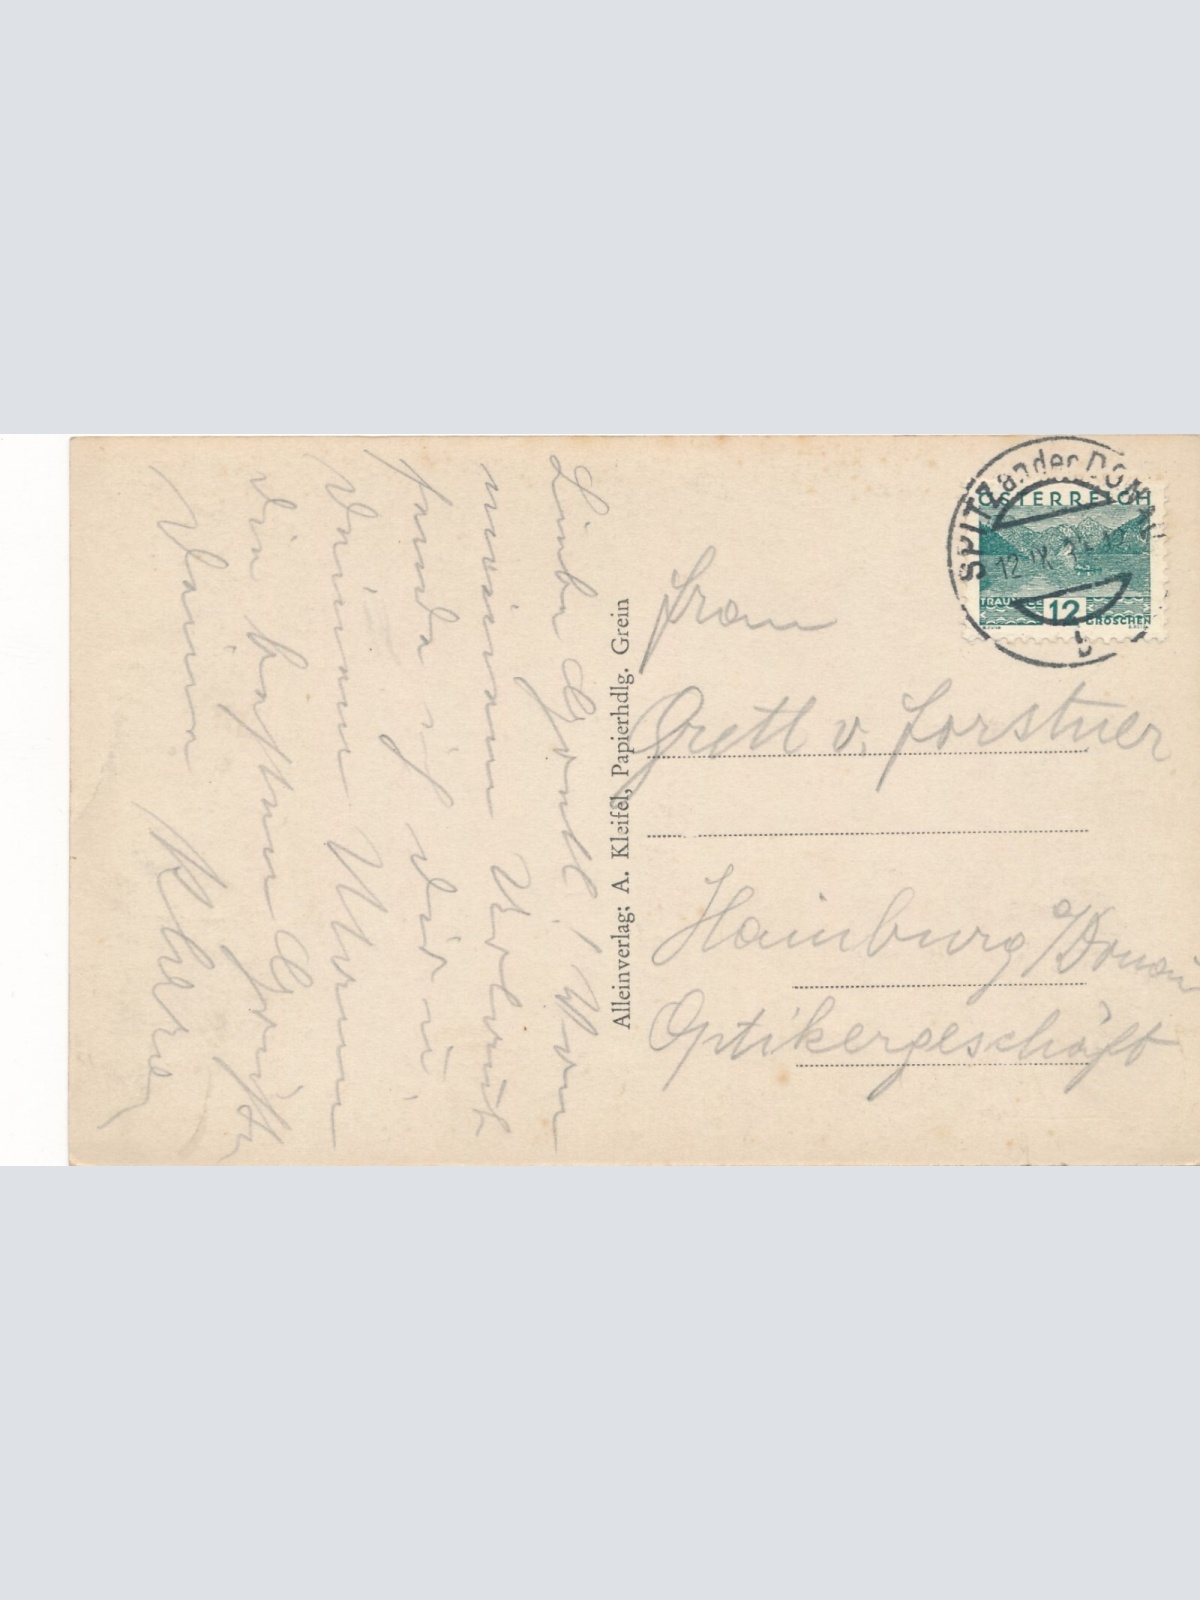 Liebe Gretl! Von
meinem Urlaub
sende ich Dir u
Deinem Mann
die besten Grüße
Deine Klara
Alleinverlag; A. Kleifel, Papierhdlg. Grein
SPITZ an der DONAU
12 IX
b
ÖSTERREICH
TRAUNSEE 12 GROSCHEN
Frau
Gretl v. Forstner
Hainburg a/Donau
Optikergeschäft